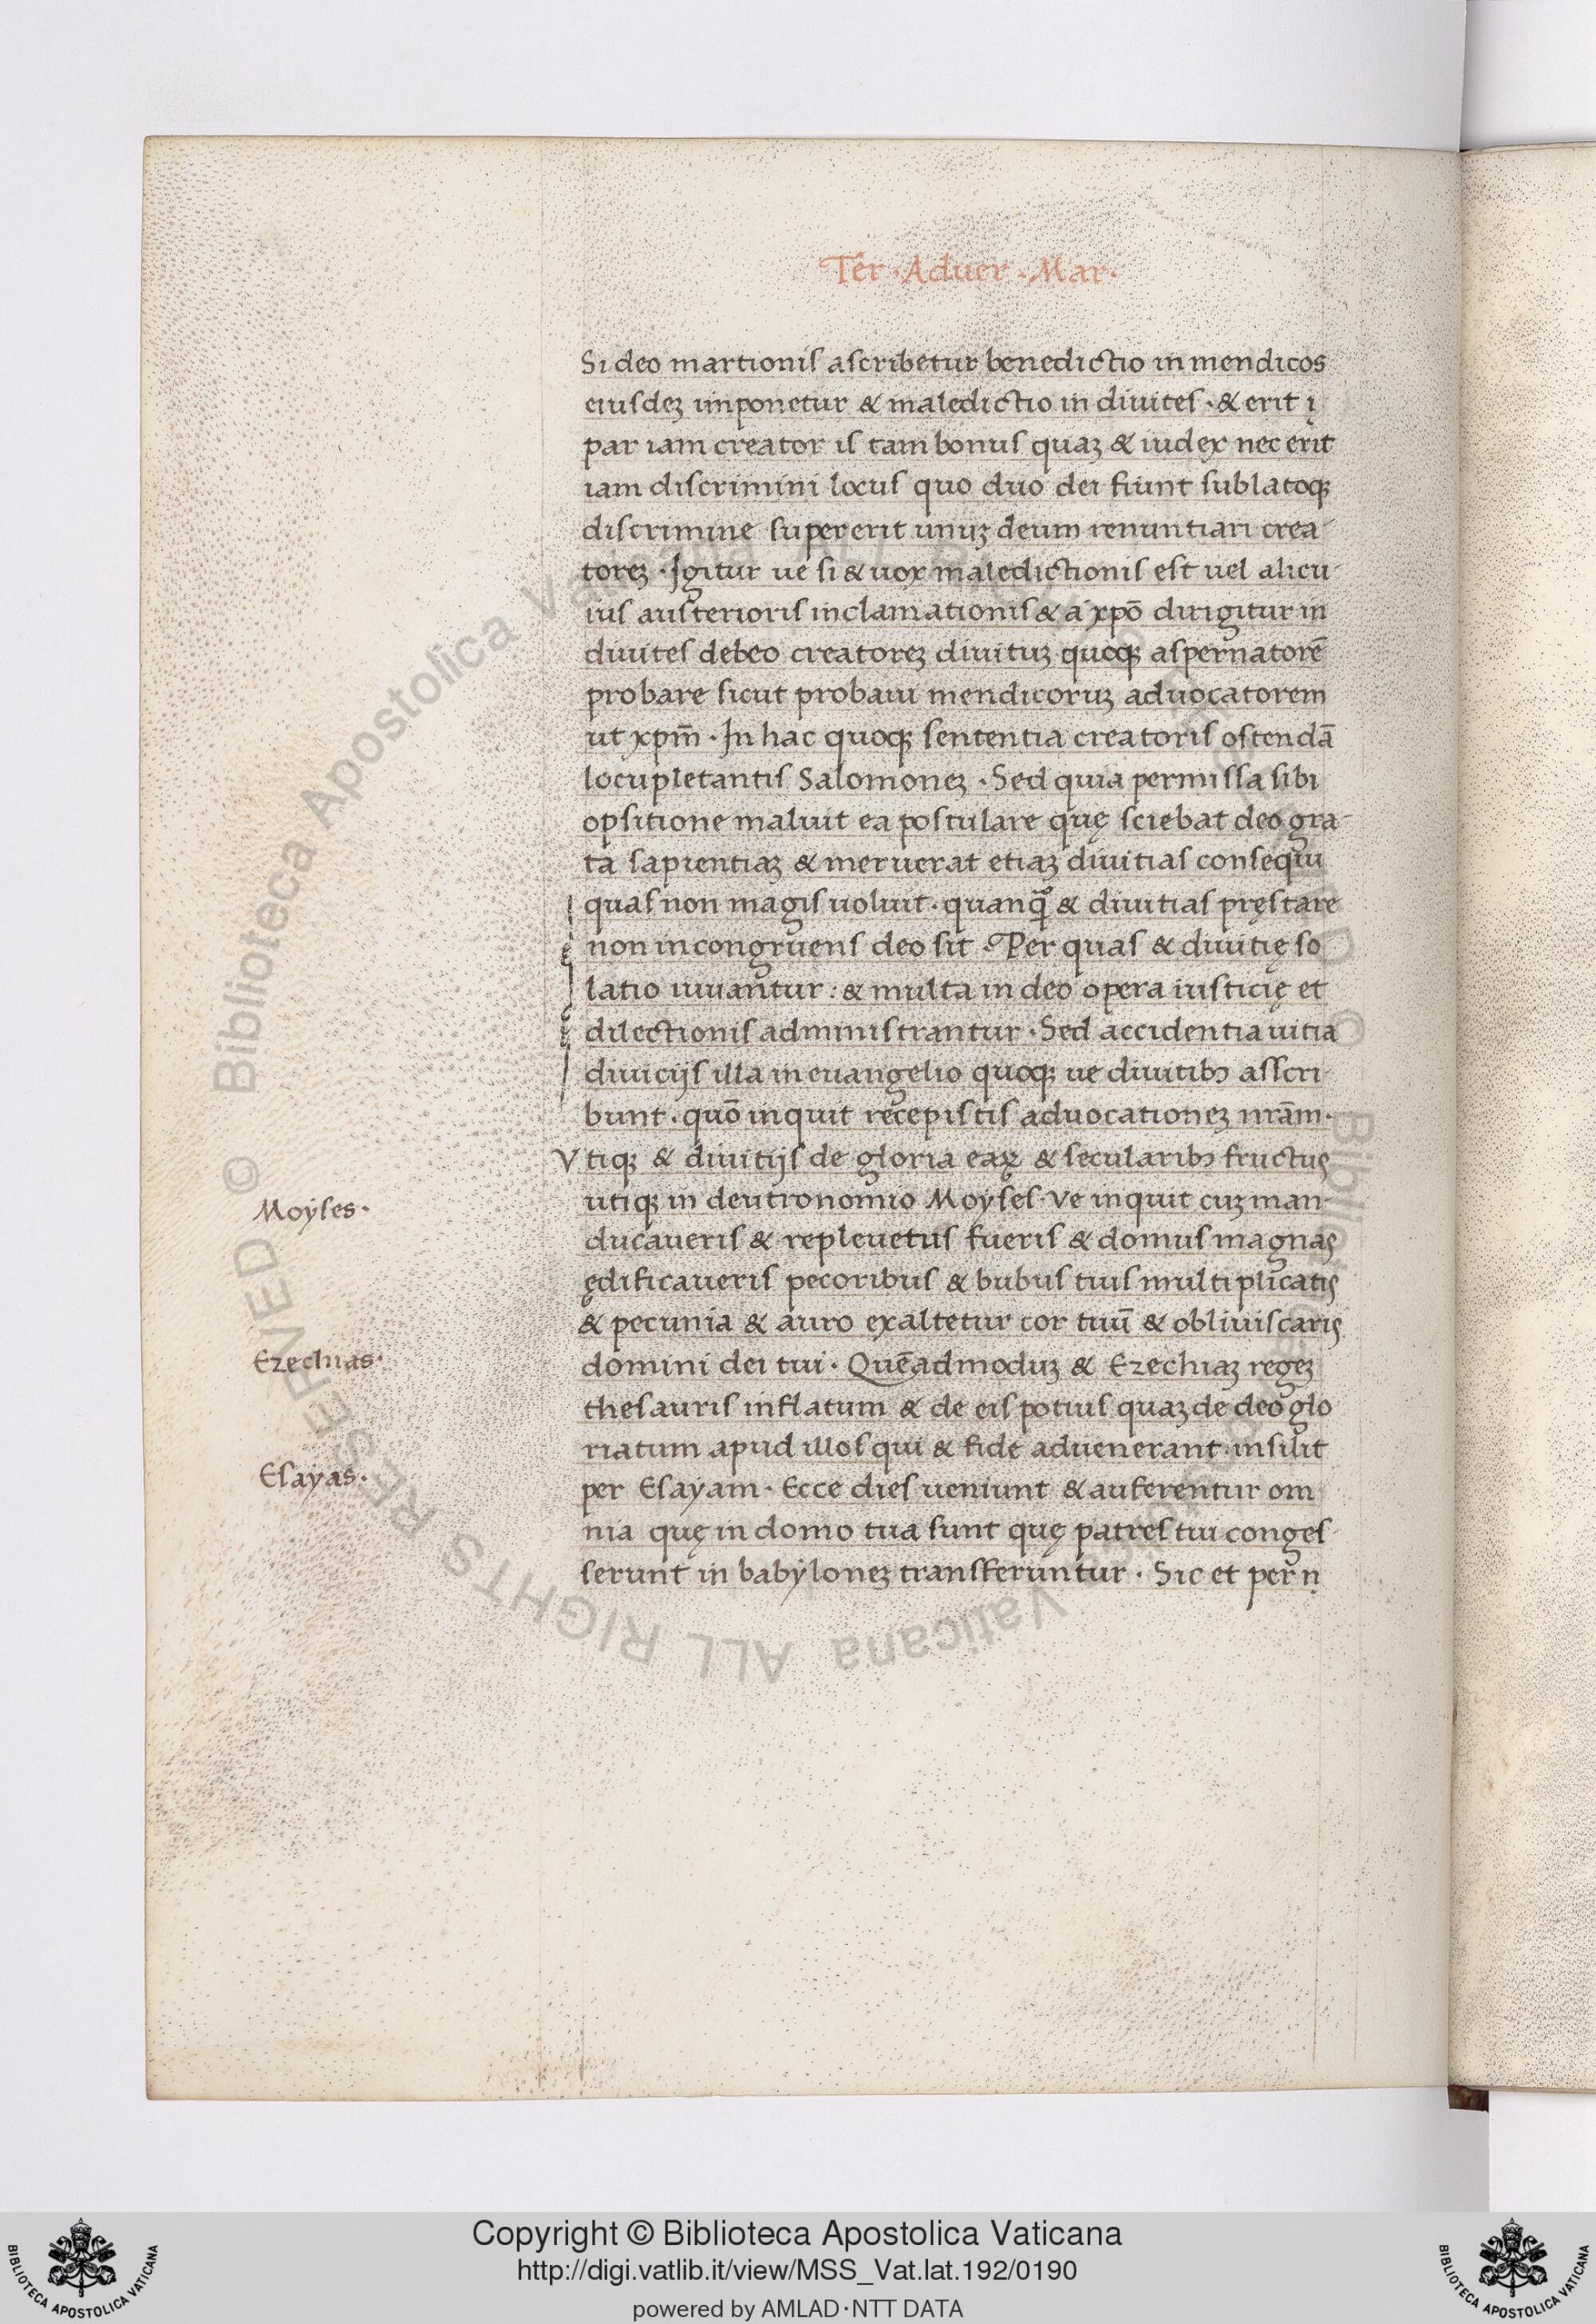 Ter̄ · Aduer · Mar ·
Si deo martionis ascribetur benedictio in mendicos
eiusdeꝫ imponetur & maledictio in diuites · & erit i
par iam creator is tam bonus quaꝫ & iudex nec erit
iam discrimini locus quo duo dei fiunt sublatoqꝫ
discrimine supererit unuꝫ deum renuntiari crea-
toreꝫ · Igitur ue si & uox maledictionis est uel alicu-
ius austerioris inclamationis & a xpō dirigitur in
diuites debeo creatoreꝫ diuituꝫ quoqꝫ aspernatorē
probare sicut probaui mendicoruꝫ aduocatorem
ut xpm̄ · In hac quoqꝫ sententia creatoris ostendā
locupletantis Salomoneꝫ · Sed quia permissa sibi
opsitione maluit ea postulare quę sciebat deo gra-
ta sapientiaꝫ & meruerat etiaꝫ diuitias consequi
quas non magis uoluit · quanq̄ & diuitias pręstare
non incongruens deo sit · Per quas & diuitię so
latio iuuantur : & multa in deo opera iusticię et
dilectionis administrantur · Sed accidentia uitia
diuicijs illa in euangelio quoqꝫ ue diuitibꝫ asscri-
bunt · quō inquit recepistis aduocationeꝫ nrām ·
Vtiqꝫ & diuitijs de gloria eaꝝ & secularibꝫ fructus
utiqꝫ in deutronomio Moyses Ve inquit cuꝫ man-
ducaueris & repleuetus fueris & domus magnas
ędificaueris pecoribus & bubus tuis multiplicatis
& pecunia & auro exaltetur cor tuū & obliuiscaris
domini dei tui · Quēadmoduꝫ & Ezechiaꝫ regeꝫ
thesauris inflatum & de eis potius quaꝫ de deo glo
riatum apud illos qui & fide aduenerant · insilit
per Esayam · Ecce dies ueniunt & auferentur om
nia quę in domo tua sunt quę patres tui conges-
serunt in babyloneꝫ transferuntur · Sic et per
Moyses ·
Ezechias ·
Esayas ·
© Biblioteca Apostolica Vaticana ALL RIGHTS RESERVED
© Biblioteca Apostolica Vaticana ALL RIGHTS RESERVED
Copyright © Biblioteca Apostolica Vaticana
http://digi.vatlib.it/view/MSS_Vat.lat.192/0190
powered by AMLAD·NTT DATA
BIBLIOTECA APOSTOLICA VATICANA
BIBLIOTECA APOSTOLICA VATICANA